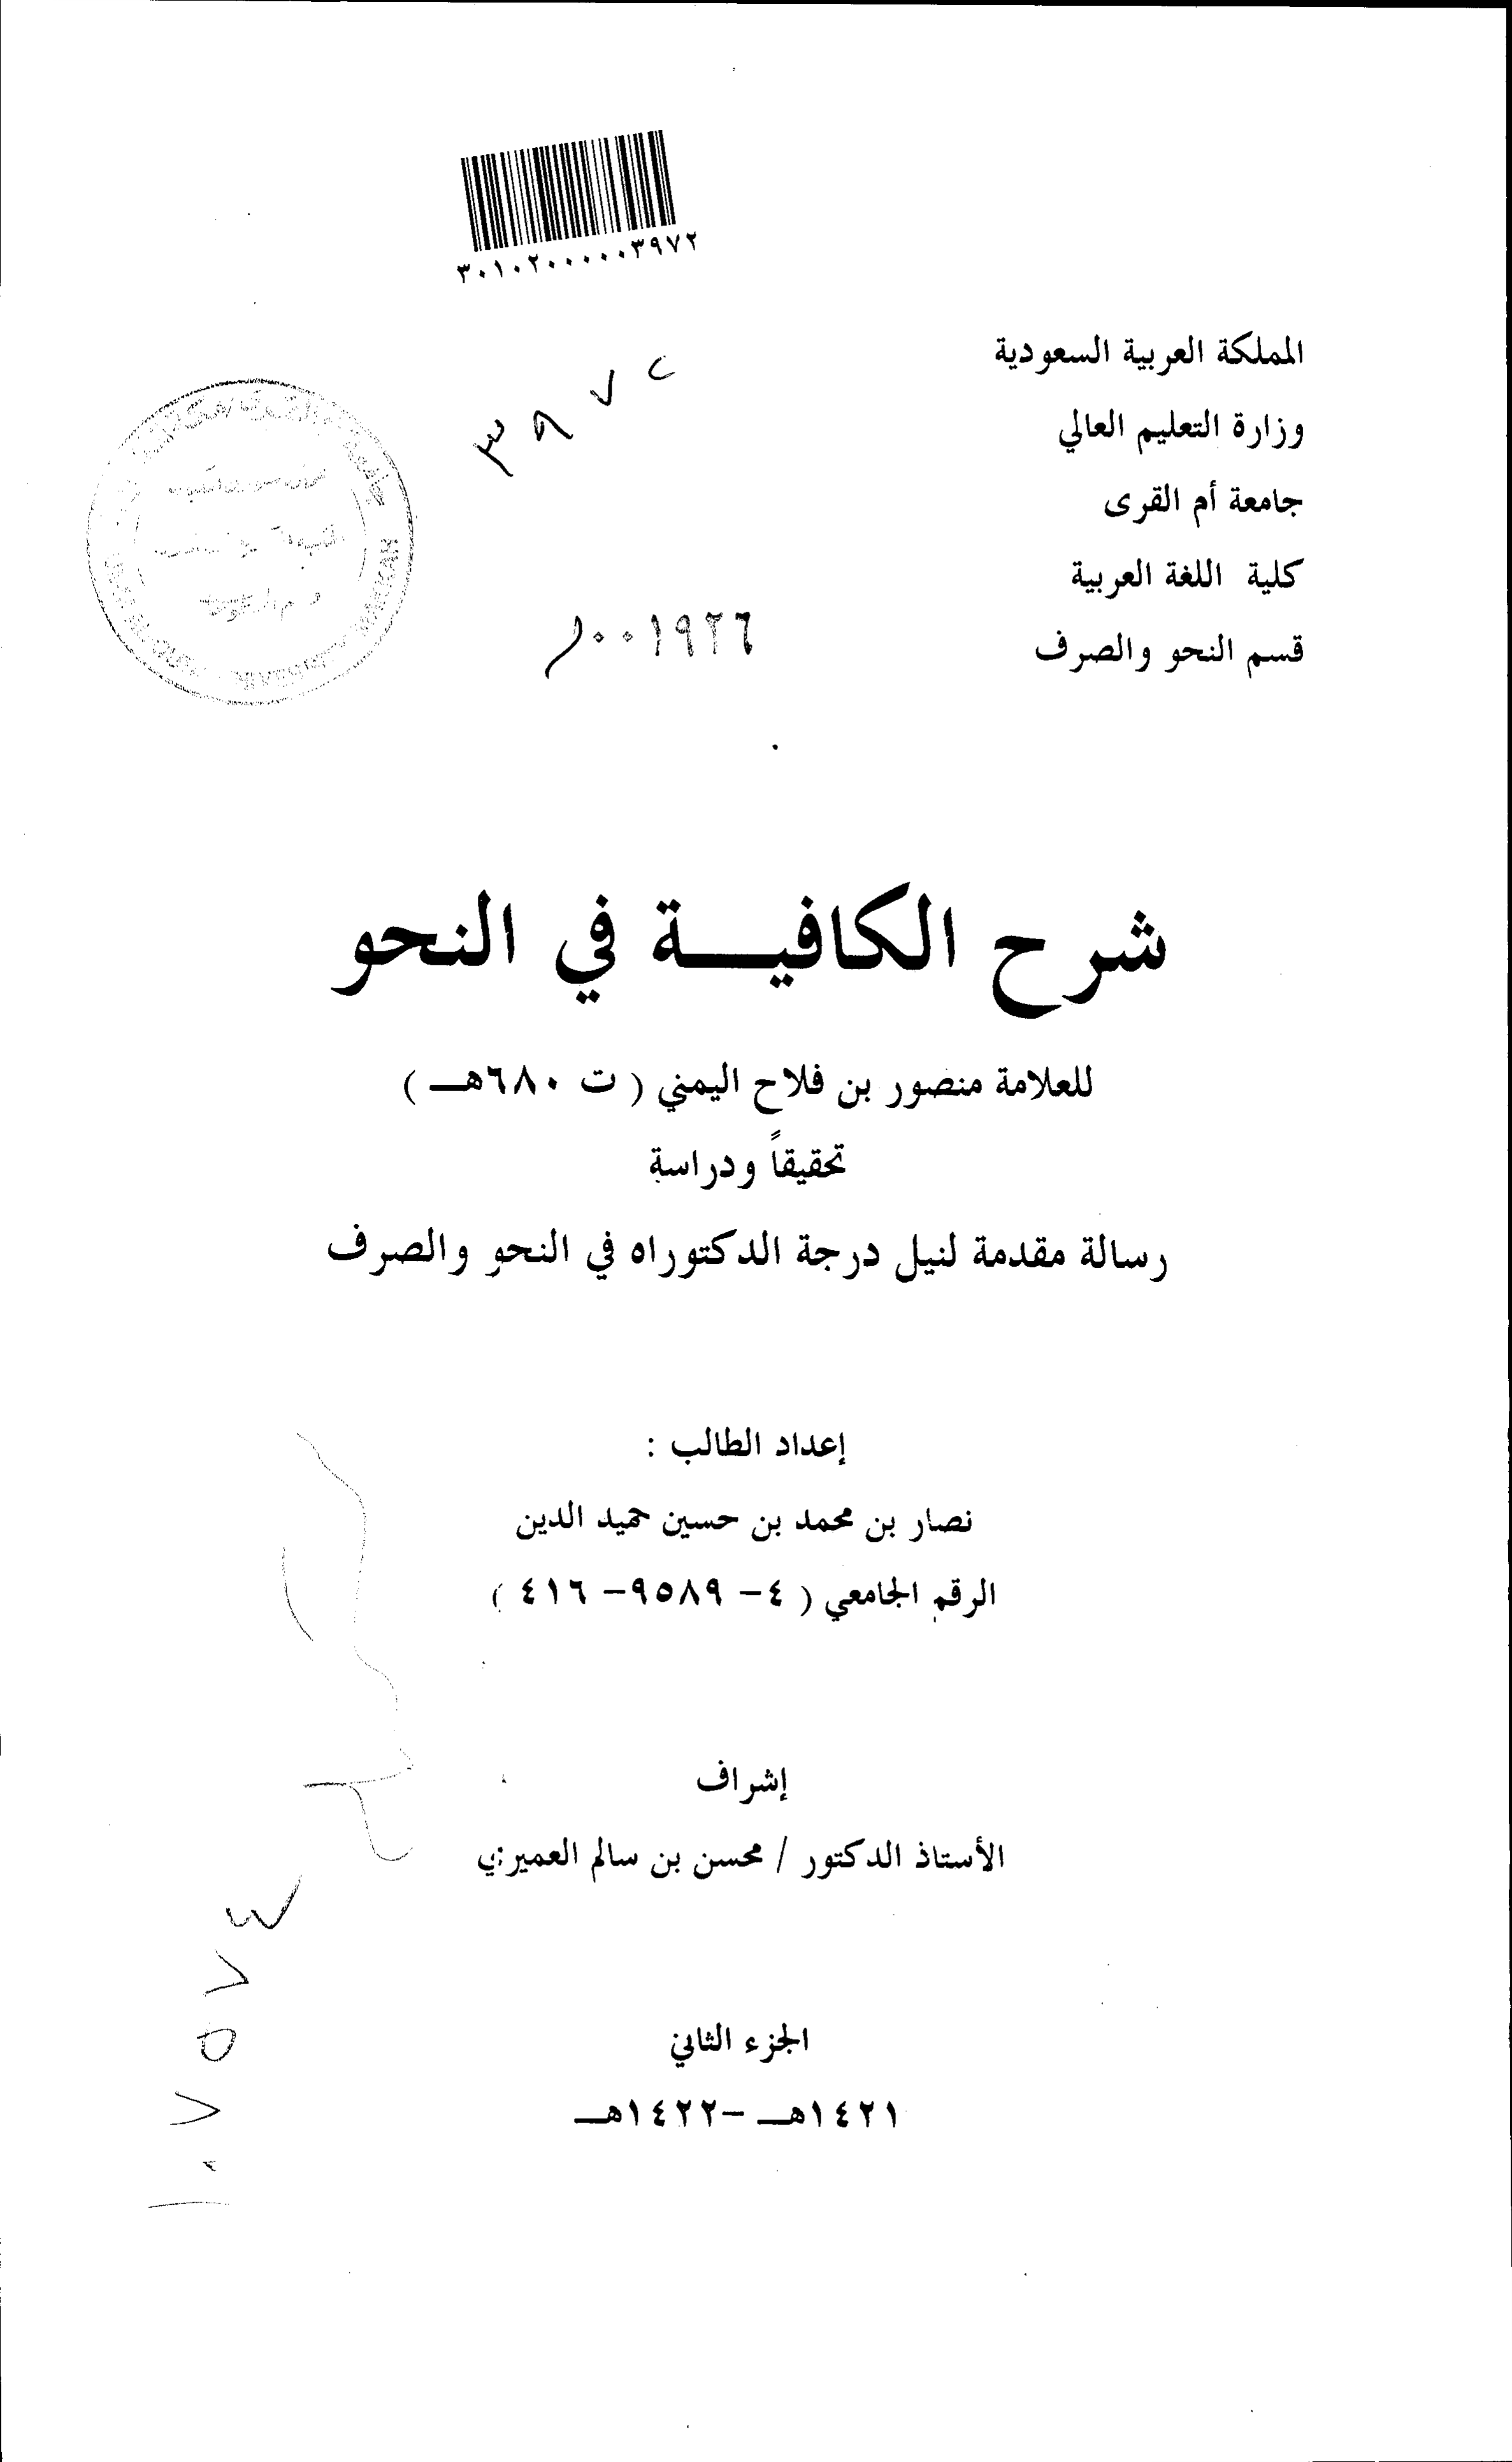 ٣٠١٠٢٠٠٠٠٠٣٩٧٢
٣٩٧٢
المملكة العربية السعودية
وزارة التعليم العالي
جامعة أم القرى
كلية اللغة العربية
قسم النحو والصرف
٠٠١٩٢٦
شرح الكافيــــة في النحو
للعلامة منصور بن فلاح اليمني ( ت ٦٨٠هـــ )
تحقيقاً ودراسة
رسالة مقدمة لنيل درجة الدكتوراه في النحو والصرف
إعداد الطالب :
نصار بن محمد بن حسين حميد الدين
الرقم الجامعي ( ٤- ٩٥٨٩- ٤١٦ )
إشراف
الأستاذ الدكتور / محسن بن سالم العميري
الجزء الثاني
١٤٢١هـــ -١٤٢٢هـــ